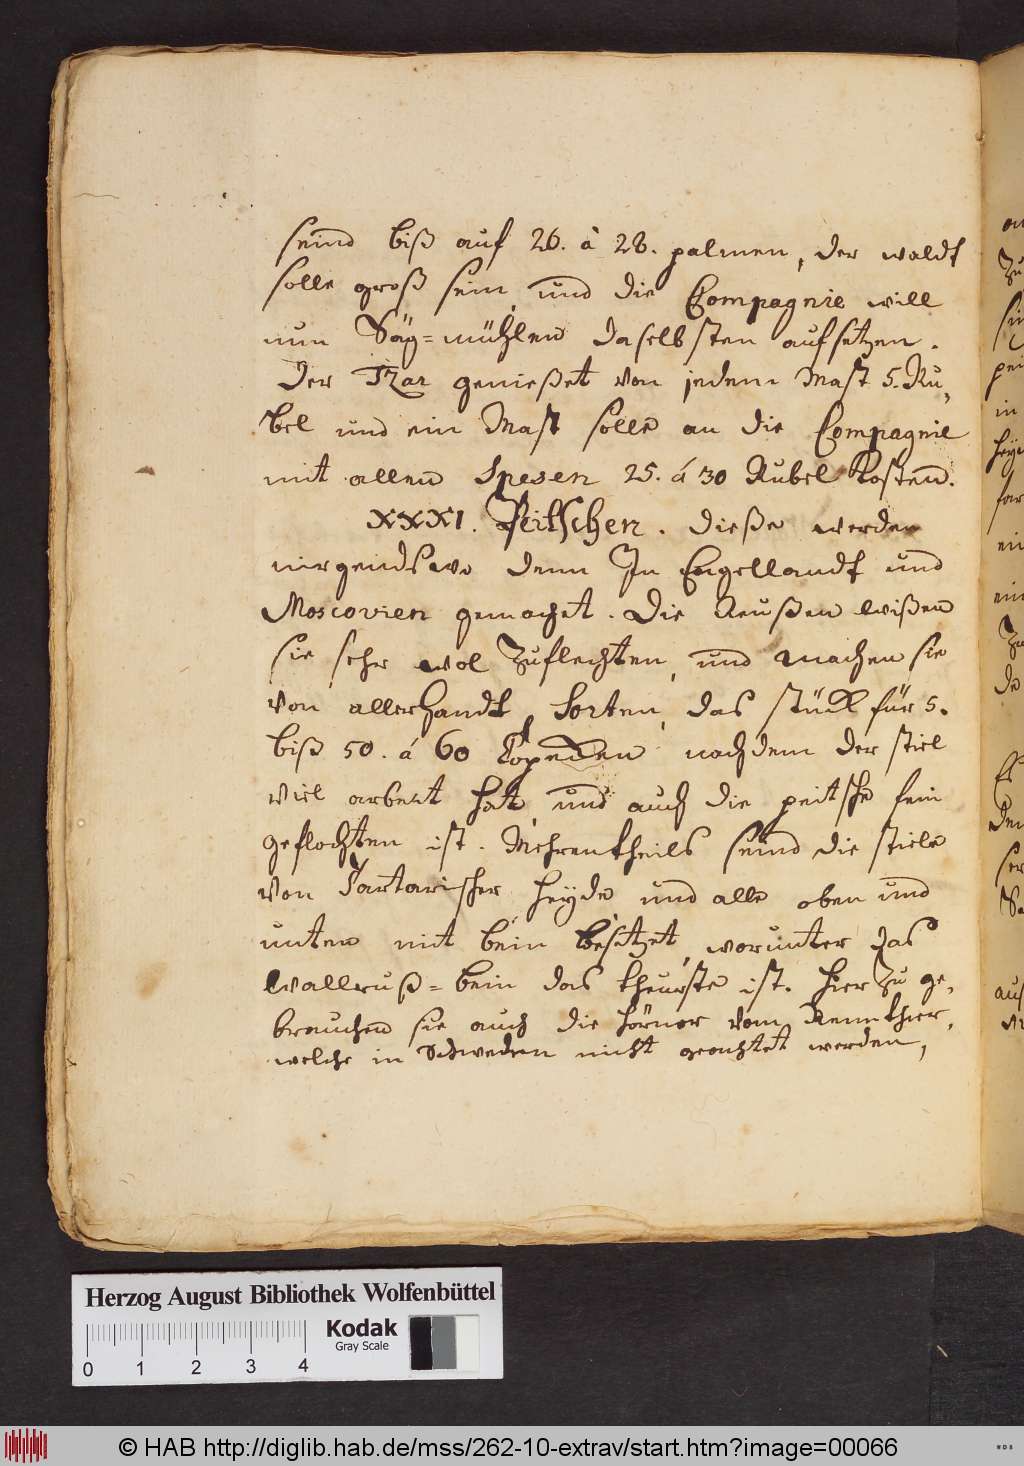 seind biß auf 26. à 28. palmen, der waldt
solle groß sein, und die Compagnie will
nun Säg=mühlen daselbsten aufsetzen.
Der Tzar genießet von jedem Mast 5. Ru,
bel und ein Mast solle an die Compagnie
mit allen Spesen 25. á 30 Rubel Kosten.
XXXI. Peitschen. Dieße werden
nirgendswo denn In Engellandt und
Moscovien gemachet. Die Reußen wißen
sie sehr wol Zuflechten, und machen sie
von allerhandt Sorten, das stück für 5.
biß 50. á 60 Copecken nachdem der stiel
viel arbeit hat, und auch die peitsche fein
geflochten ist. Mehrentheils seind die stiele
von Tartarischer heyde und alle oben und
unten mit bein besetzet, worunter das
Wallruß=bein das theurste ist. hierzu ge,
brauchen sie auch die hörner vom Rennthier,
welche in Schweden nicht geachtet werden,
Herzog August Bibliothek Wolfenbüttel
Kodak
Gray Scale
0 1 2 3 4
© HAB http://diglib.hab.de/mss/262-10-extrav/start.htm?image=00066